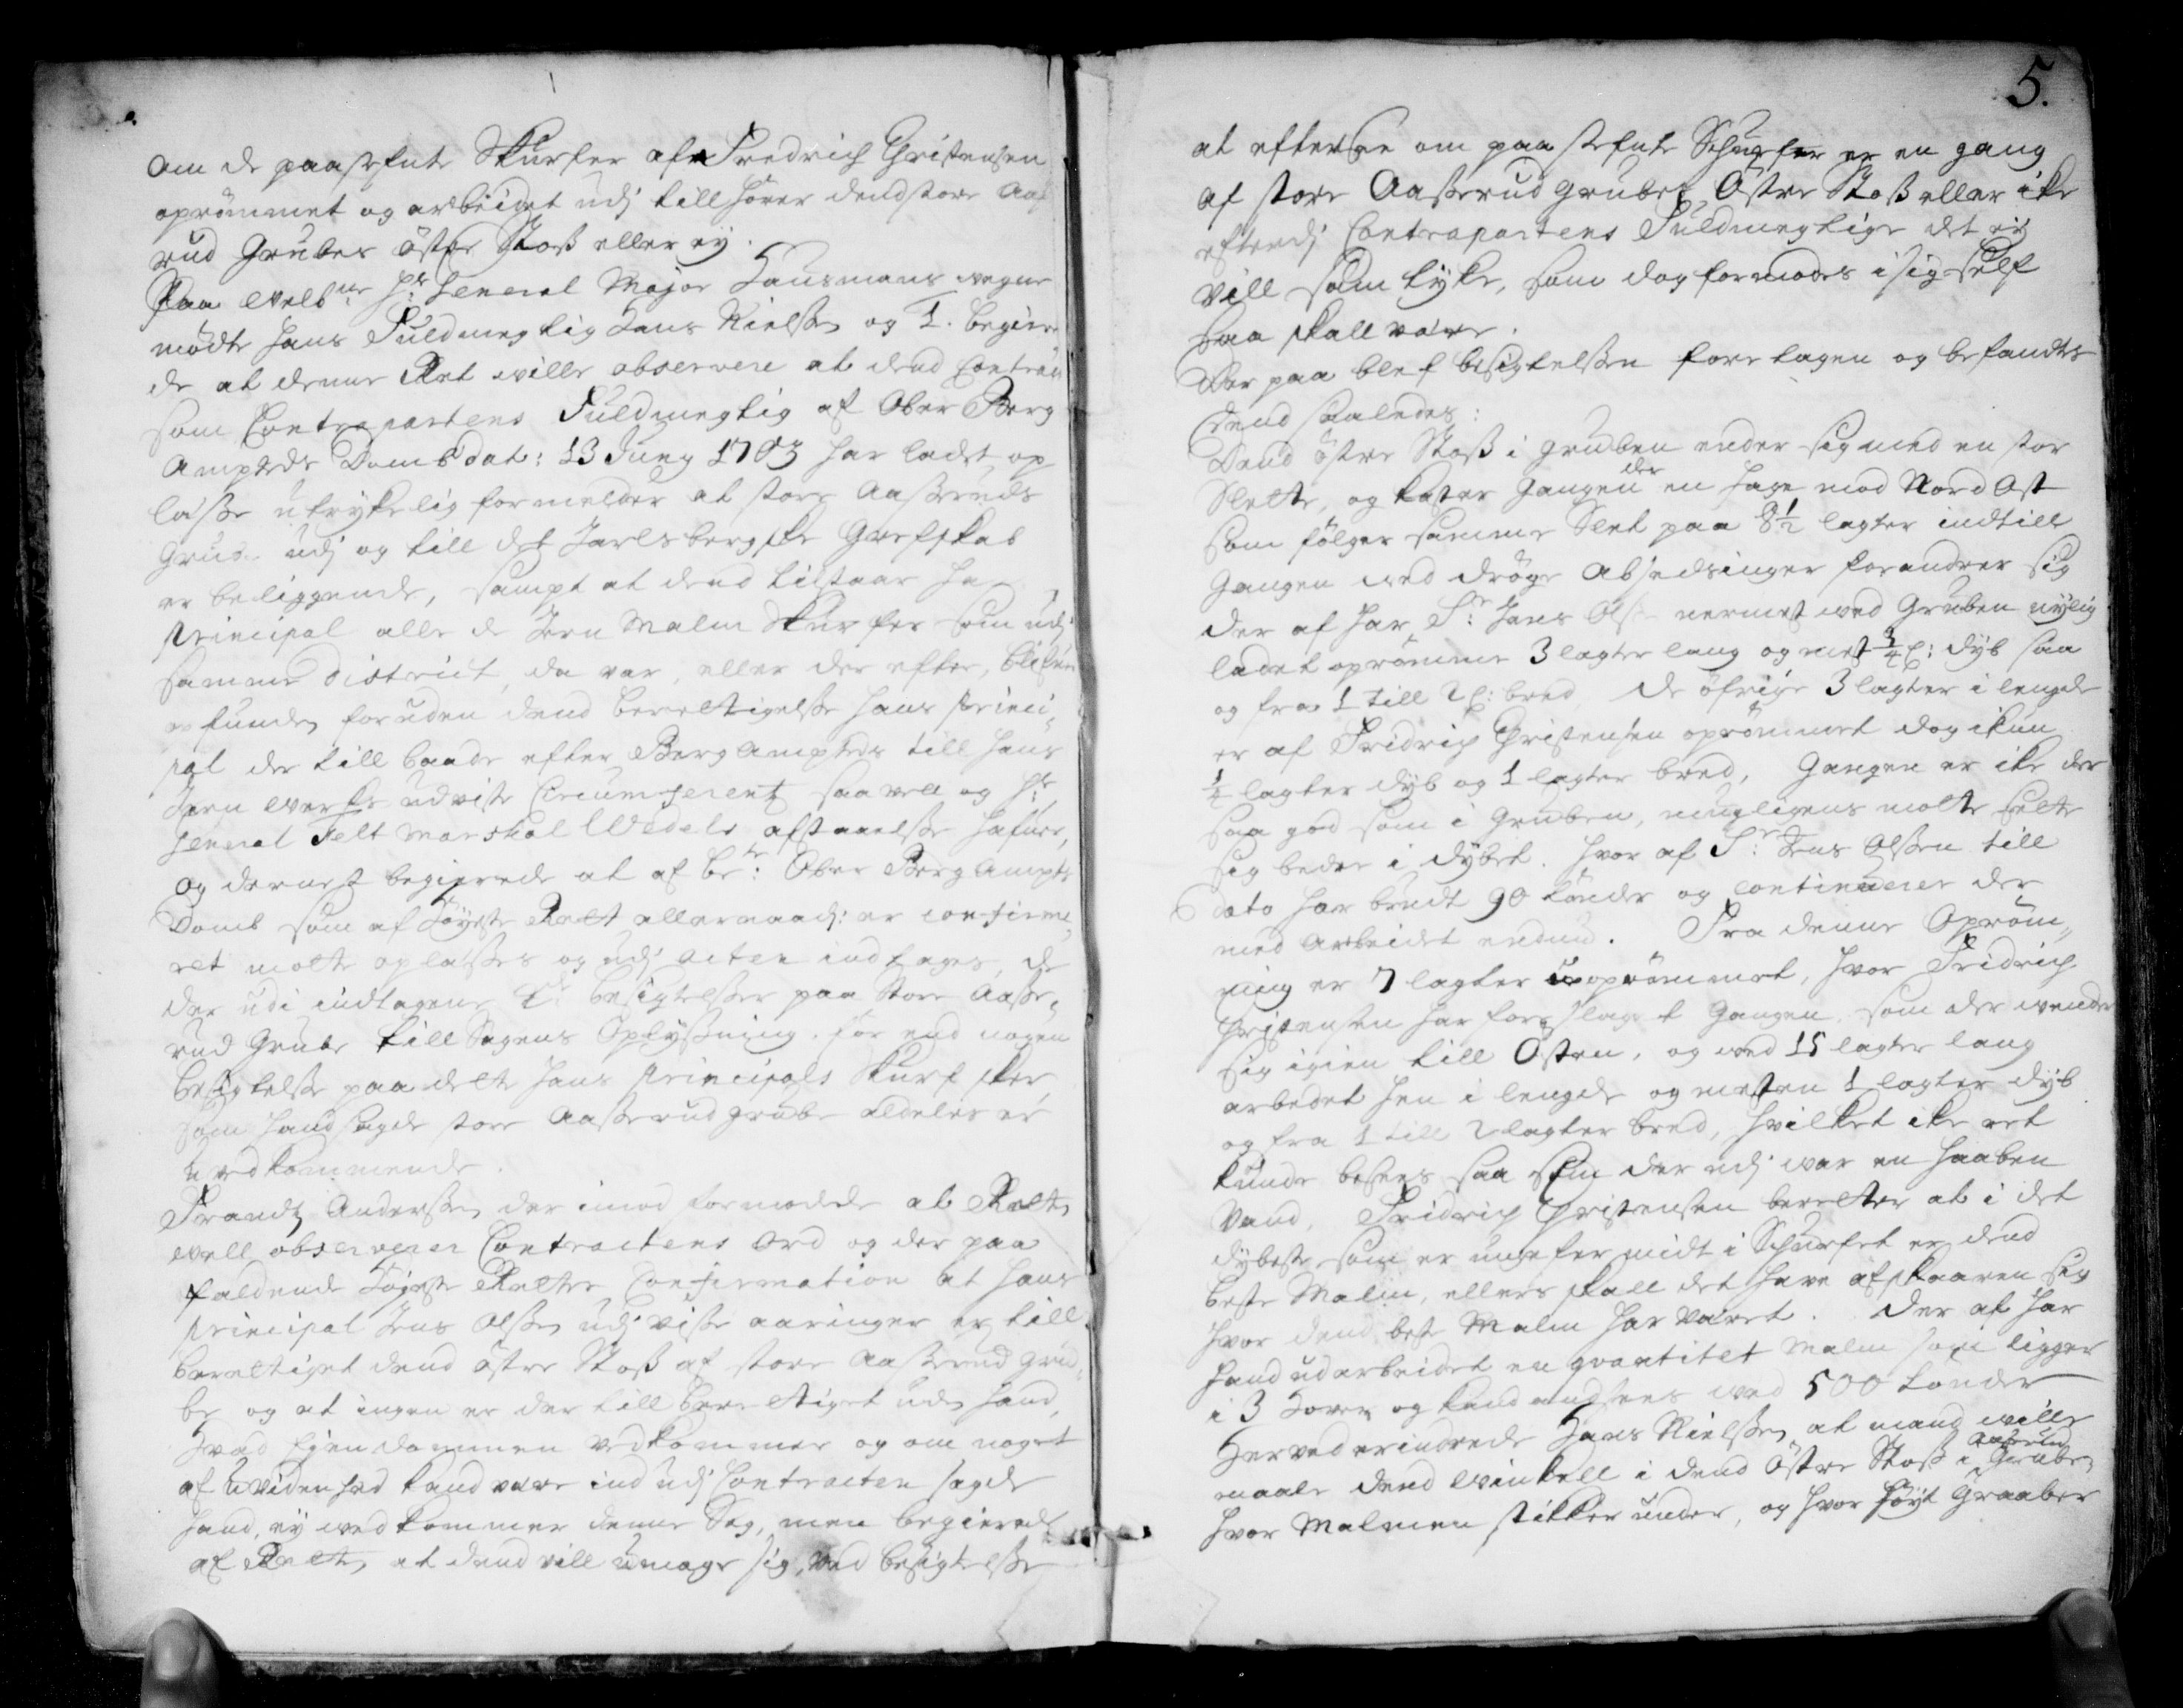 om de paastefnte Skurfer af Fredrich Christensen
oprömmet og arbeidet udj till hörer dend store Aas
rud Grubes östre Stoß eller ey.
Paa Welbne Hr General Major Hausmans vegne
mödte hans Fuldmegtig Hans Nielßen og 1. begiere
de at denne Ret wille observere at dend Contract
som Contrapartens Fuldmegtig af Ober Berg
Ampteds Domb dat: 13 Juny 1703 har ladet op
läße utrykelig formelder at store Aaßeruds
Grube udj og till det Jarlsbergske Grefskab
er beliggende, sampt at dend tilstaar ha
Principal alle de Jern Malm Skurfer som udj
samme District, da var, eller der efter, blifver
funden foruden dend berettigelße hans Princi
pal der till baade efter Berg Ampteds till hans
Jern Werks udviste Circumferentz saa vell og Hr
General Felt Marskal Wedels afstaaelße hafver,
og dernest begierede at af bte: Ober Berg Ampts
Domb som af Höyeste Rett allernaadj: er confirme
ret motte oplaßes og udj acten indtages, de
der udi indtagene besigtelßer paa Store Aaße,
rud Grube till Sagens Oplyßning. för end nogen
besigtelße paa dette hans Principals Skurf skeer
som hand sagde store Aaßerud grube aldeles er
uvedkommende.
Frandtz Anderßen der imod formodede at Retten
well observerer Contractens Ord og der paa
faldende Högeste Retts Confirmation at hans
Principal Jens Olßen udj viße aaringer er till
berettiget dend östre Stoß af store Aaßerud Gru
be og at ingen er der till berettiget uden hand,
hvad Eyendommen vedkommer og om noget
af uvidenhed kand være ind udj Contracten sagde
hand, ey wedkommer denne Sag, men begierede
af Retten at dend vill umage sig, ved besigtelße
5.
at efterse om paastefnte Schurfer er en gang
af store Aaßerud Grubes Östre Stoß eller ike
efterdj Contrapartens Fuldmegtige det ey
vill samtyke, som dog formodes i sig self
saa skall være.
Der paa blef besigtelßen foretagen og befandtes
dend saaledes:
Dend östre Stoß i gruben ender sig med en stor
Slette, og kaster Gangen der en hage mod Nord Ost
som fölger samme Slet paa 8½ lagter indtill
Gangen wed dröge Absedninger forandrer sig
der af har Sr: Jens Olßen nermest wed Gruben nylig
ladet oprömme 3 lagter lang og mest ¾ l: dyb saa
og fra 1 till 2 l: bred de öfrige 3 lagter i lengde
er af Fridrich Christensen oprömmet dog ikun
¼ lagter dyb og 1 lagter bred, Gangen er ike der
saa god som i Gruben, mugligens motte sette
sig bedre i dybet. hvor af Sr: Jens Olßen till
Dato har brudt 90 tönder og continuerer der
med Arbeidet endnu. Fra denne Opröm,,
ning er 7 lagter uoprömmet, hvor Fridrich
Christensen har forslaget Gangen som der wender
sig igien till Östen, og wed 15 lagter lang
arbedet hen i lengde og mesten 1 lagter dyb
og fra 1 till 2 lagter bred, hvilket ike ret
kunde besees saa som der udj war en haaben
Vand, Fridrich Christensen beretter at i det
dybeste som er ungefer midt i Schurfet er dend
beste Malm, ellers skall det have afskaaren sig
hvor dend best Malm har været. der af har
hand udarbeidet en quantitet Malm som ligger
i 3 Hover og kand ansees wed 500 tönder
Herved erindrede Hans Nielßen at mand wille
maale dend Winkell i dend Östre Stoß i Aaßerud Gruben
hvor Malmen stikker under, og hvor höyt Graaber